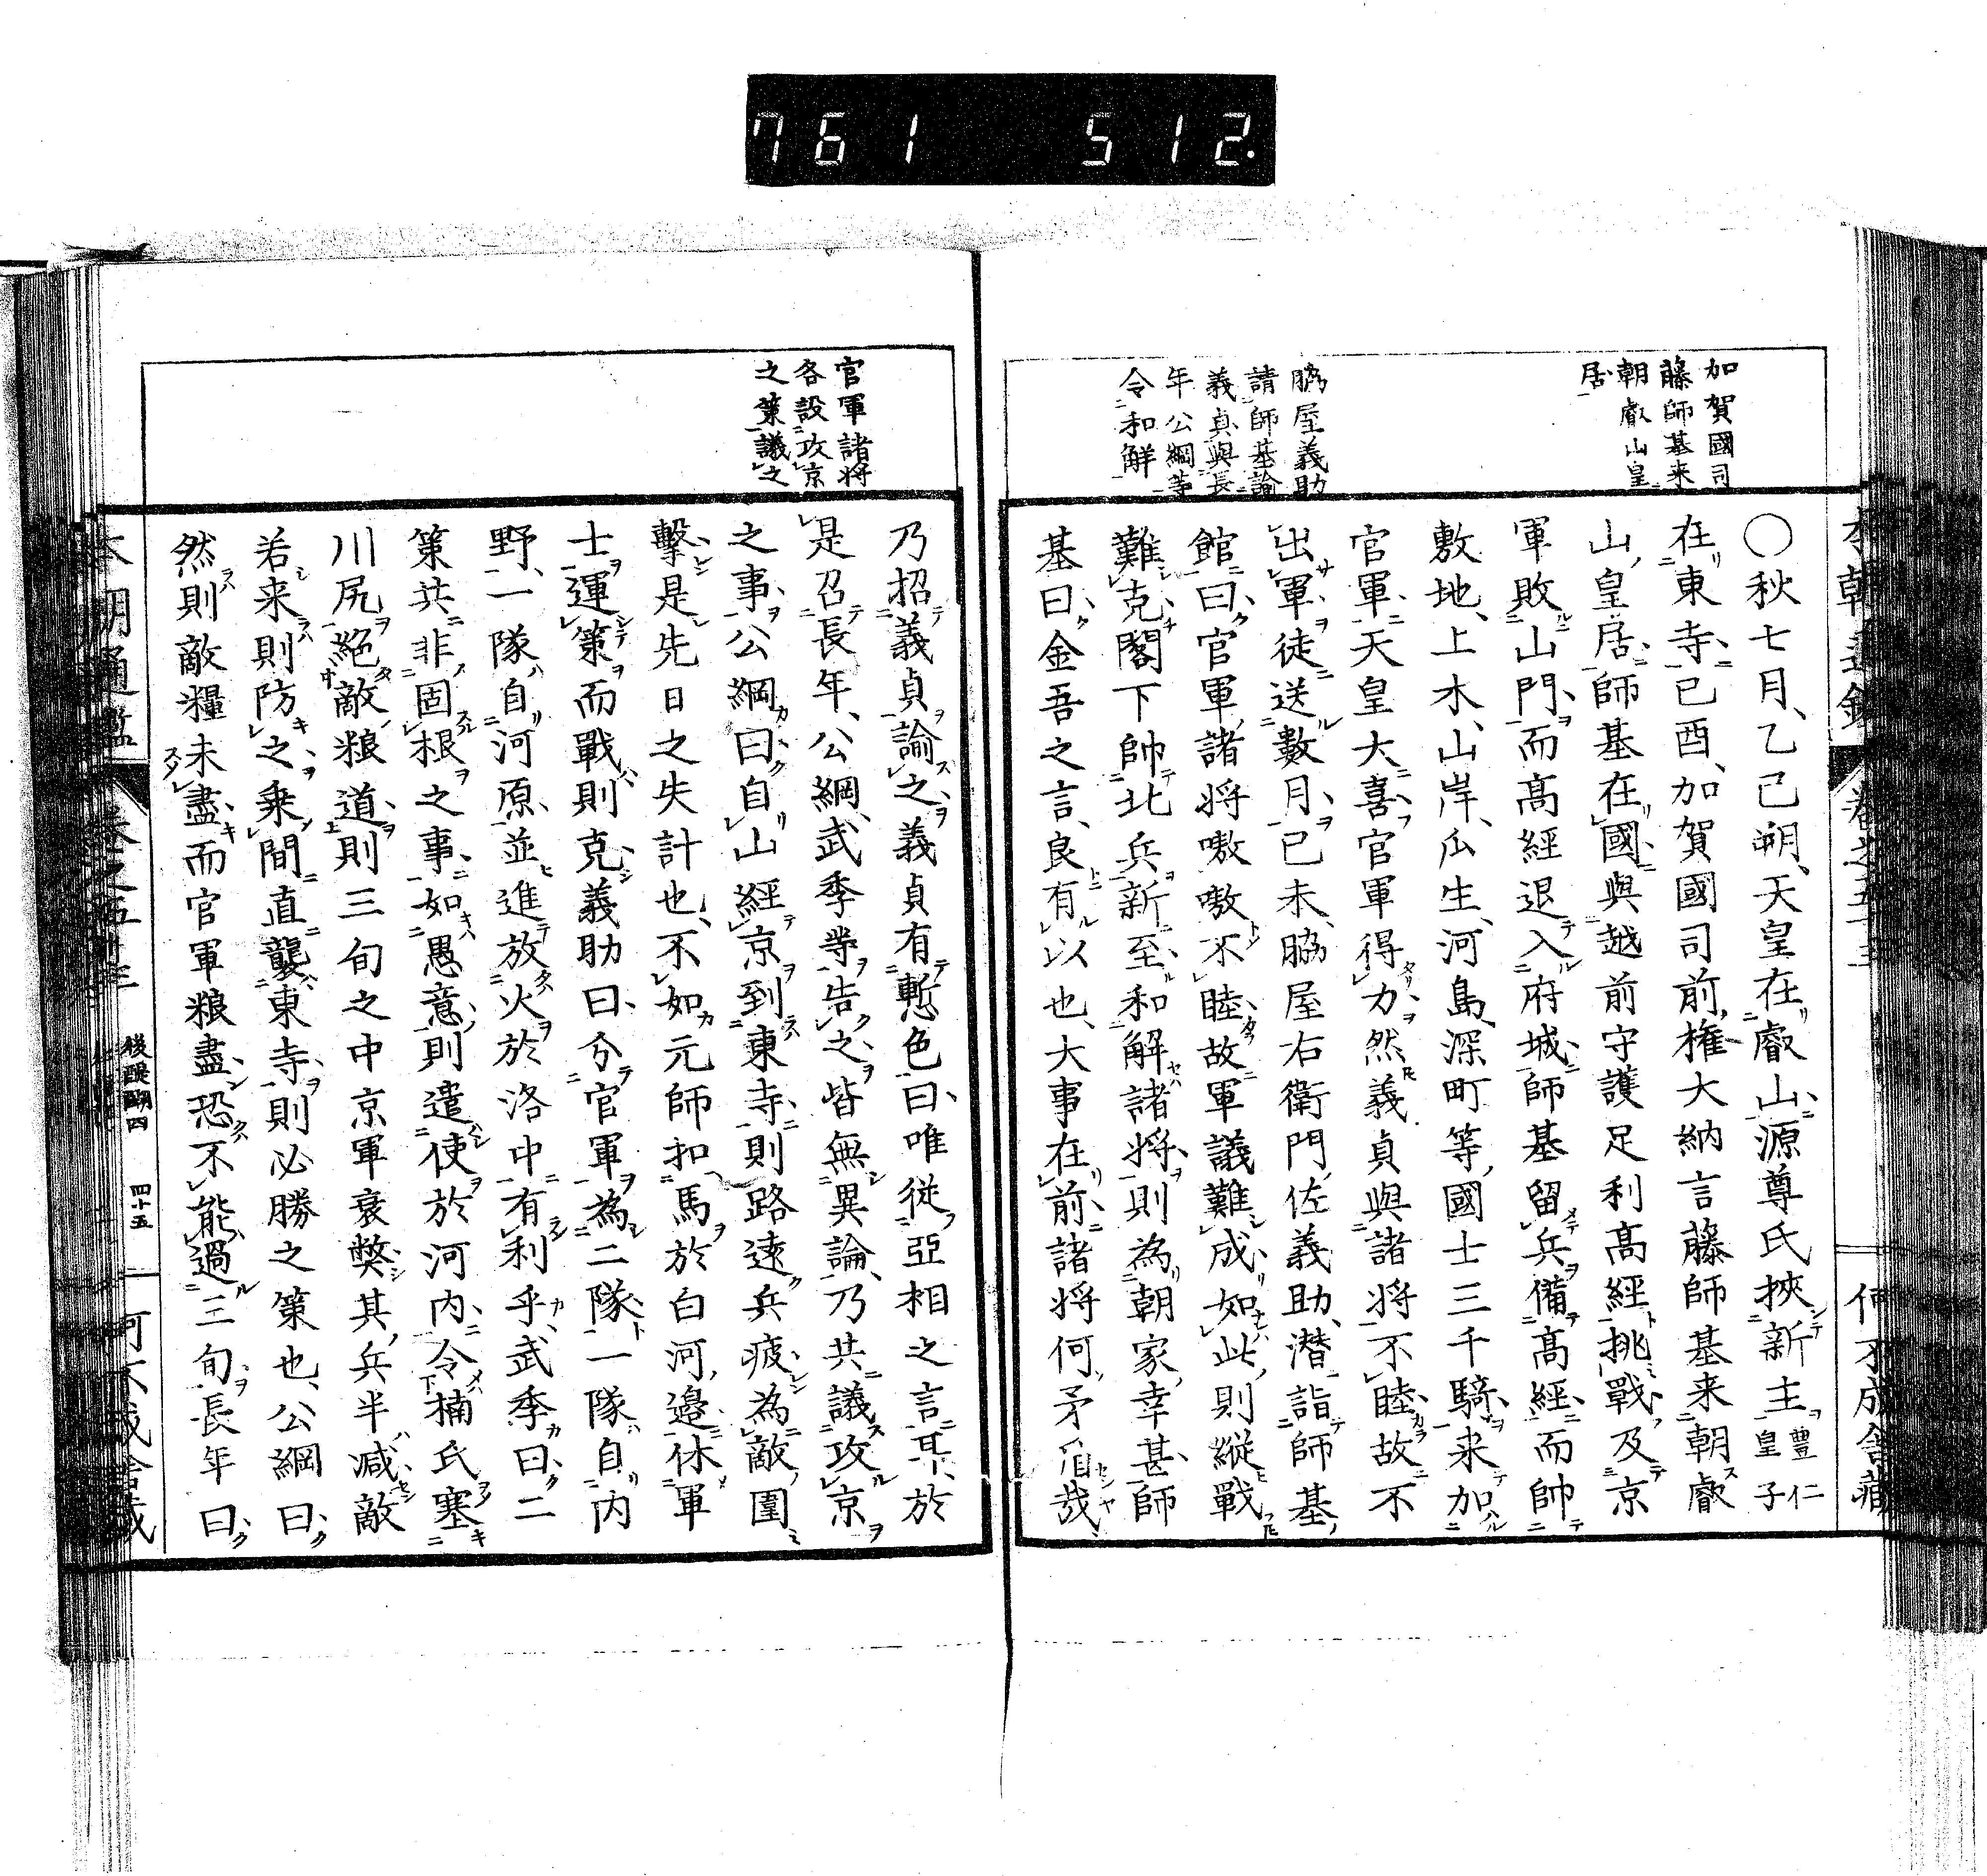 761 512.
加賀國司
藤師基来
朝叡山皇
居
脇屋義助
請師基諭
義貞與長
年公綱等
令和解
〇秋七月、乙己朔、天皇在叡山、源尊氏挾新主豊仁皇子
在東寺、己酉、加賀國司前權大納言藤師基来朝叡
山皇居、師基在國與越前守護足利高經挑戰、及京
軍敗山門、而高經退入府城、師基留兵備高經、而帥
敷地、上木、山岸、瓜生、河島、深町等、國士三千騎来加
官軍、天皇大喜、官軍得力、然義貞與諸将不睦、故不
出軍、徒送數月、已未、脇屋右衛門佐義助、潜詣師基
館曰、官軍諸将嗷嗷不睦、故軍議難成、如此則縱戰
難克、閣下帥北兵新至、和解諸将、則為朝家幸甚、師
基曰、金吾之言、良有以也、大事在前、諸将何矛盾哉、
官軍諸将
各設攻京
之策議之
乃招義貞諭之、義貞有慙色曰、唯從亞相之言耳、於
是召長年、公綱、武季等告之、皆無異論、乃共議攻京
之事、公綱曰、自山經京到東寺、則路遠兵疲、為敵圍
擊、是先日之失計也、不如元師扣馬於白河邉、休軍
士運策而戰則克、義助曰、分官軍為二隊、一隊自内
野、一隊自河原、並進放火於洛中、有利乎、武季曰、二
策共非固根之事、如愚意、則遣使於河内、令楠氏塞
川尻、絕敵粮道、則三旬之中京軍衰弊、其兵半減、敵
若来則防之、乗間直襲東寺、則必勝之策也、公綱曰、
然則敵糧未盡、而官軍粮盡、恐不能過三旬、長年曰、
本朝通鑑 卷之五十三 後醍醐四 四十五